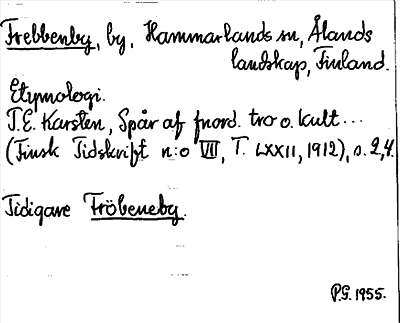 Frebbenby, by, Hammarlands sn, Ålands
landskap, Finland.
Etymologi.
T.E. Karsten, Spår af fnord. tro o. kult...
(Finsk Tidskrift n:o VII, T. LXXII, 1912), s. 2,4.
Tidigare Fröbeneby.
P.G. 1955.